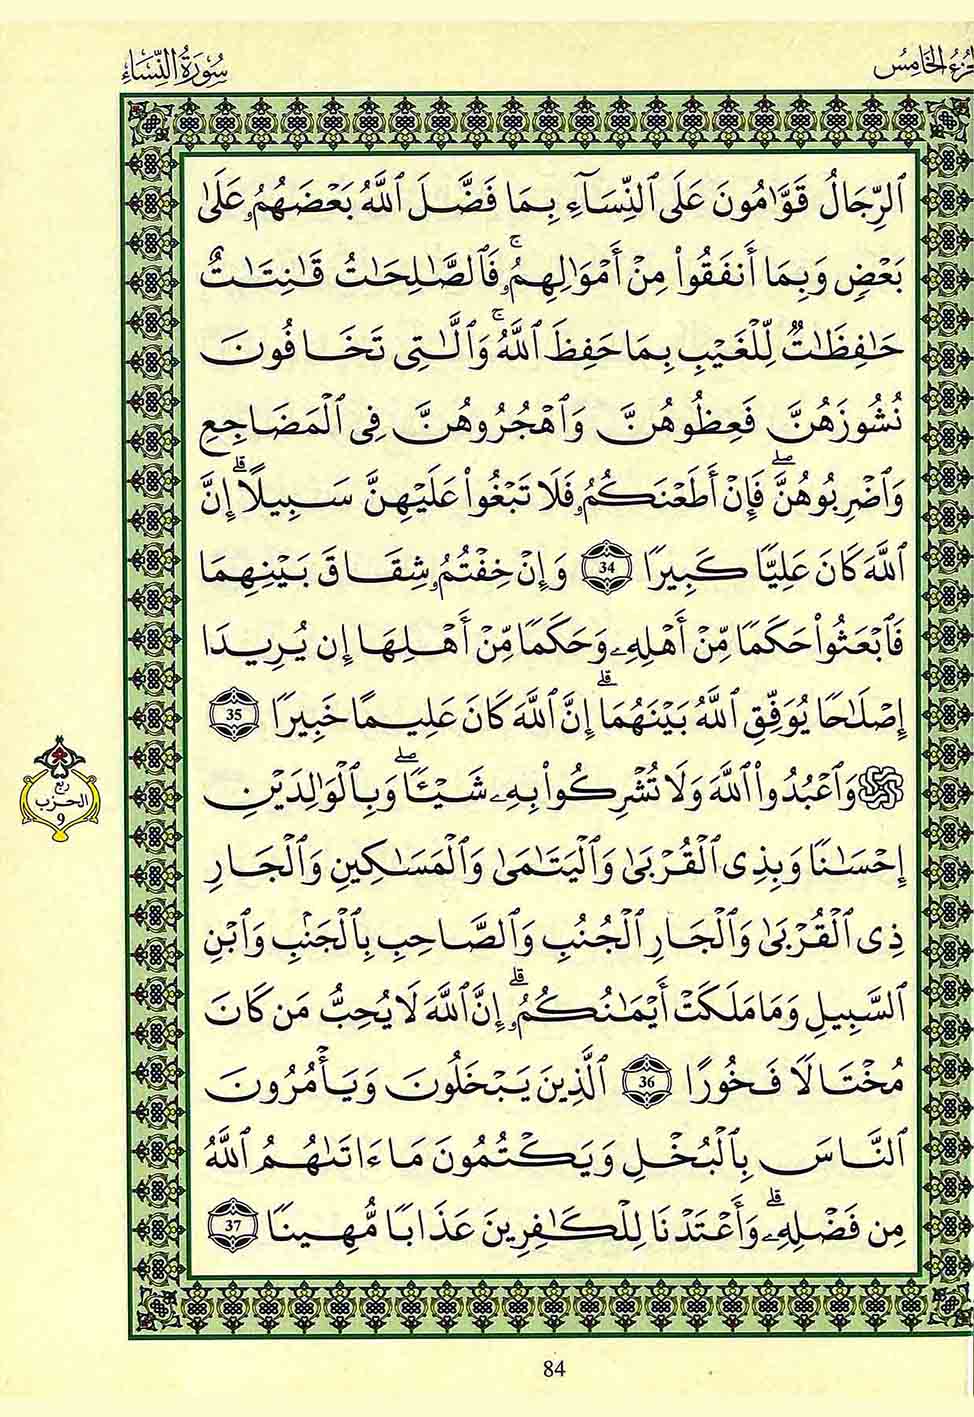 الجزء الخامس
سُورَةُ النِّسَاءِ
ٱلرِّجَالُ قَوَّٰمُونَ عَلَى ٱلنِّسَآءِ بِمَا فَضَّلَ ٱللَّهُ بَعْضَهُمُۥ عَلَىٰ
بَعْضٍ وَبِمَآ أَنفَقُوا۟ مِنْ أَمْوَٰلِهِمُۥۚ فَٱلصَّٰلِحَٰتُ قَٰنِتَٰتٌ
حَٰفِظَٰتٌ لِّلْغَيْبِ بِمَا حَفِظَ ٱللَّهُۚ وَٱلَّٰتِى تَخَافُونَ
نُشُوزَهُنَّ فَعِظُوهُنَّ وَٱهْجُرُوهُنَّ فِى ٱلْمَضَاجِعِ
وَٱضْرِبُوهُنَّۖ فَإِنْ أَطَعْنَكُمُۥ فَلَا تَبْغُوا۟ عَلَيْهِنَّ سَبِيلًاۗ إِنَّ
ٱللَّهَ كَانَ عَلِيًّا كَبِيرًا 34 وَإِنْ خِفْتُمُۥ شِقَاقَ بَيْنِهِمَا
فَٱبْعَثُوا۟ حَكَمًا مِّنْ أَهْلِهِۦ وَحَكَمًا مِّنْ أَهْلِهَا إِن يُرِيدَا
إِصْلَٰحًا يُوَفِّقِ ٱللَّهُ بَيْنَهُمَاۗ إِنَّ ٱللَّهَ كَانَ عَلِيمًا خَبِيرًا 35
وَٱعْبُدُوا۟ ٱللَّهَ وَلَا تُشْرِكُوا۟ بِهِۦ شَيْـًٔاۖ وَبِٱلْوَٰلِدَيْنِ
إِحْسَٰنًا وَبِذِى ٱلْقُرْبَىٰ وَٱلْيَتَٰمَىٰ وَٱلْمَسَٰكِينِ وَٱلْجَارِ
ذِى ٱلْقُرْبَىٰ وَٱلْجَارِ ٱلْجُنُبِ وَٱلصَّاحِبِ بِٱلْجَنۢبِ وَٱبْنِ
ٱلسَّبِيلِ وَمَا مَلَكَتْ أَيْمَٰنُكُمُۥۗ إِنَّ ٱللَّهَ لَا يُحِبُّ مَن كَانَ
مُخْتَالًا فَخُورًا 36 ٱلَّذِينَ يَبْخَلُونَ وَيَأْمُرُونَ
ٱلنَّاسَ بِٱلْبُخْلِ وَيَكْتُمُونَ مَا ءَاتَىٰهُمُ ٱللَّهُ
مِن فَضْلِهِۦۗ وَأَعْتَدْنَا لِلْكَٰفِرِينَ عَذَابًا مُّهِينًا 37
ربع
الحزب
9
84